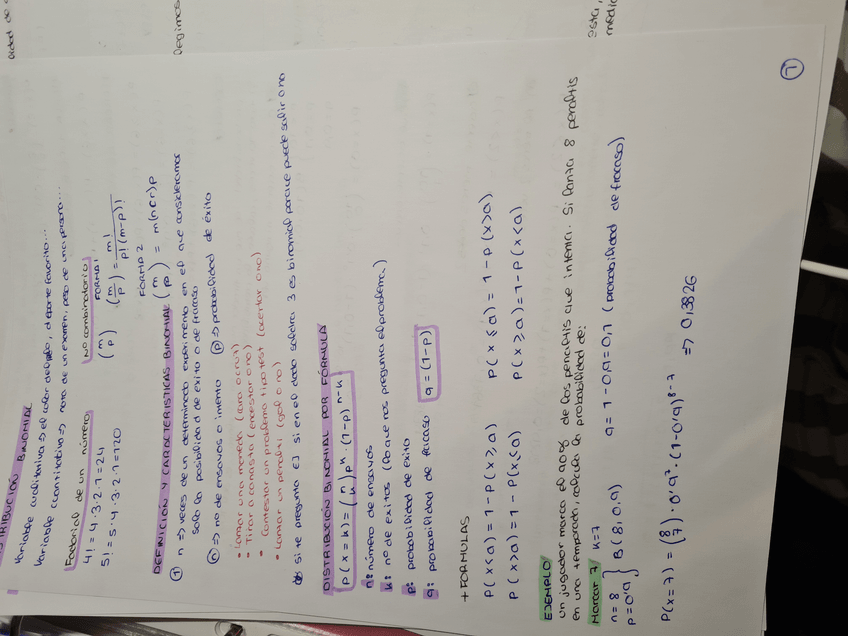 DISTRIBUCIÓN BINOMIAL
Variable cualitativa => el color del pelo, deporte favorito...
Variable cuantitativa => nota de un examen, peso de una persona...
Factorial de un número
4! = 4·3·2·1 = 24
5! = 5·4·3·2·1 = 120
Nº combinatorio
FORMA 1
(m p) (m/p) = m! / p!(m-p)!
FORMA 2
(m p) = m(nCr)p
DEFINICIÓN Y CARACTERÍSTICAS BINOMIAL
① n => veces de un determinado experimento en el que consideramos
solo la posibilidad de éxito o de fracaso
ⓝ => nº de ensayos o intento ⓟ => probabilidad de éxito
• Lanzar una moneda (cara o cruz)
• Tirar a canasta (encestar o no)
• Contestar un problema tipo test (acertar o no)
• Lanzar un penalti (gol o no)
si te pregunta EJ si en el dado saldrá 3 es binomial porque puede salir o no
DISTRIBUCIÓN BINOMIAL POR FÓRMULA
P(x=k) = (n k) p^k · (1-p)^n-k
n: número de ensayos
k: nº de éxitos (lo que nos pregunta el problema)
p: probabilidad de éxito
q: probabilidad de fracaso q = (1-p)
+ FORMULAS
P(x<a) = 1-P(x≥a) P(x≤a) = 1-P(x>a)
P(x>a) = 1-P(x≤a) P(x≥a) = 1-P(x<a)
EJEMPLO
un jugador marca el 90% de los penaltis que intenta. Si lanza 8 penaltis
en una temporada, calcula la probabilidad de:
Marcar 7 k=7
n=8
p=0'9 } B(8, 0,9) q = 1-0,9 = 0,1 (probabilidad de fracaso)
P(x=7) = (8 7) · 0'9^7 · (1-0'9)^8-7 => 0,3826
①
idad de
Regimos
esta,
media